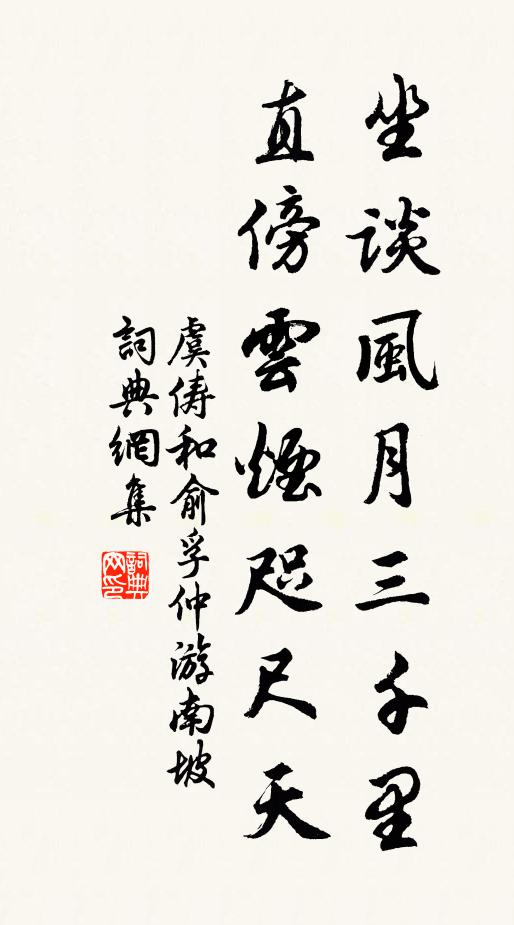 坐談風月三千里
直傍雲煙咫尺天
虞儔和俞孚仲游南坡
詞典網集
詞典網印